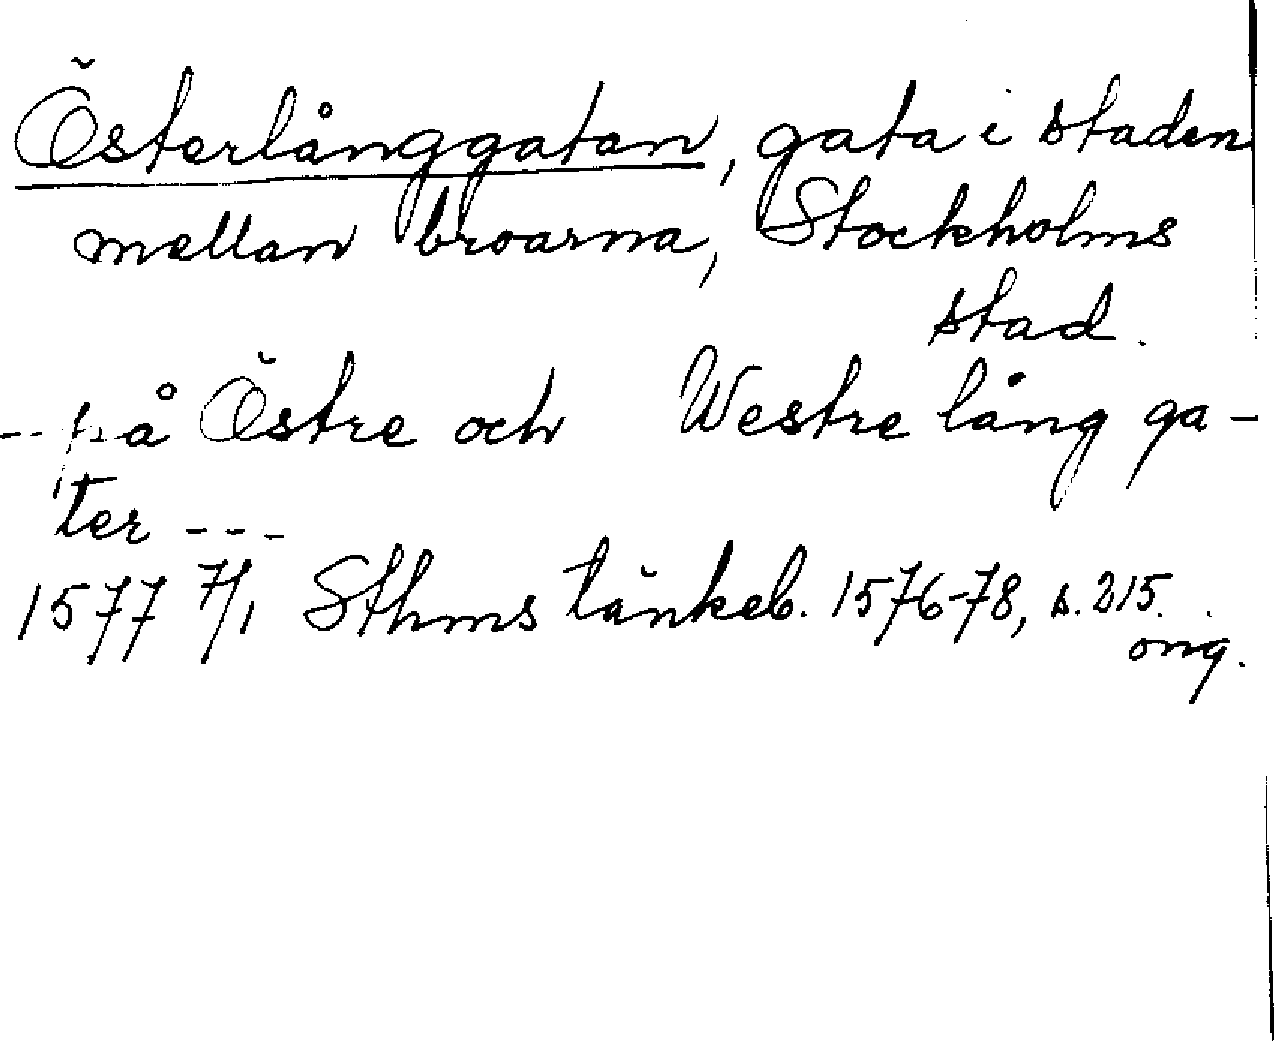 Österlånggatan, gata i staden
mellan broarna, Stockholms
stad.
-- på Östre och Westre lång ga-
ter ---
1577 7/1 Sthms tänkeb. 1576-78, s. 215.
orig.